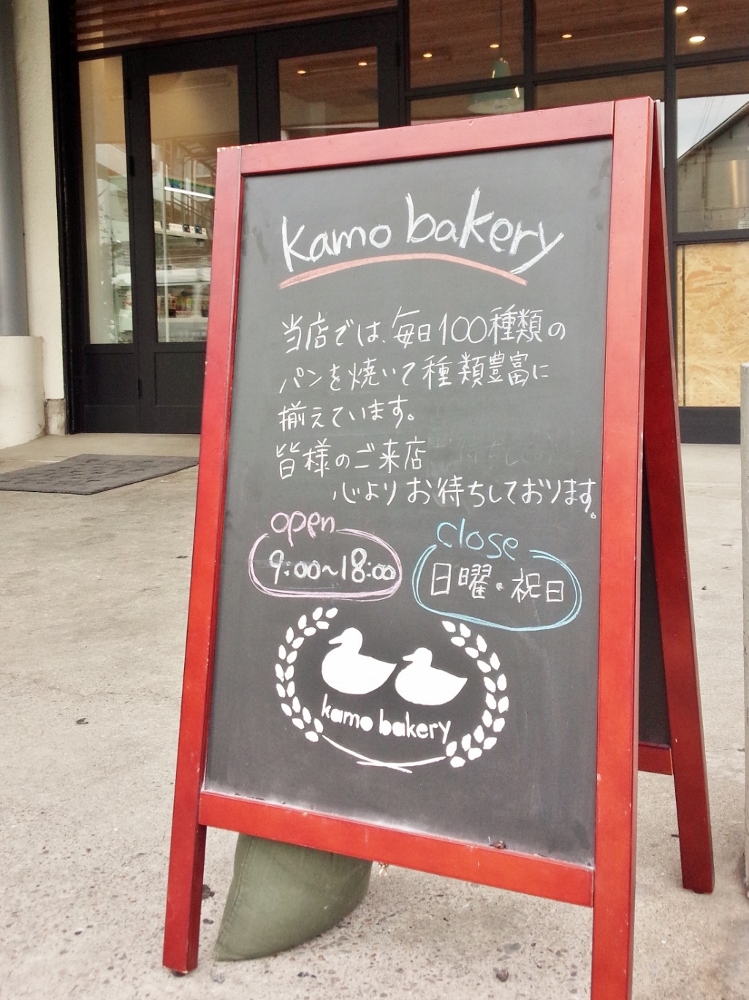 kamo bakery
当店では、毎日100種類の
パンを焼いて種類豊富に
揃えています。
皆様のご来店
心よりお待ちしております。
open
9:00~18:00
close
日曜・祝日
kamo bakery